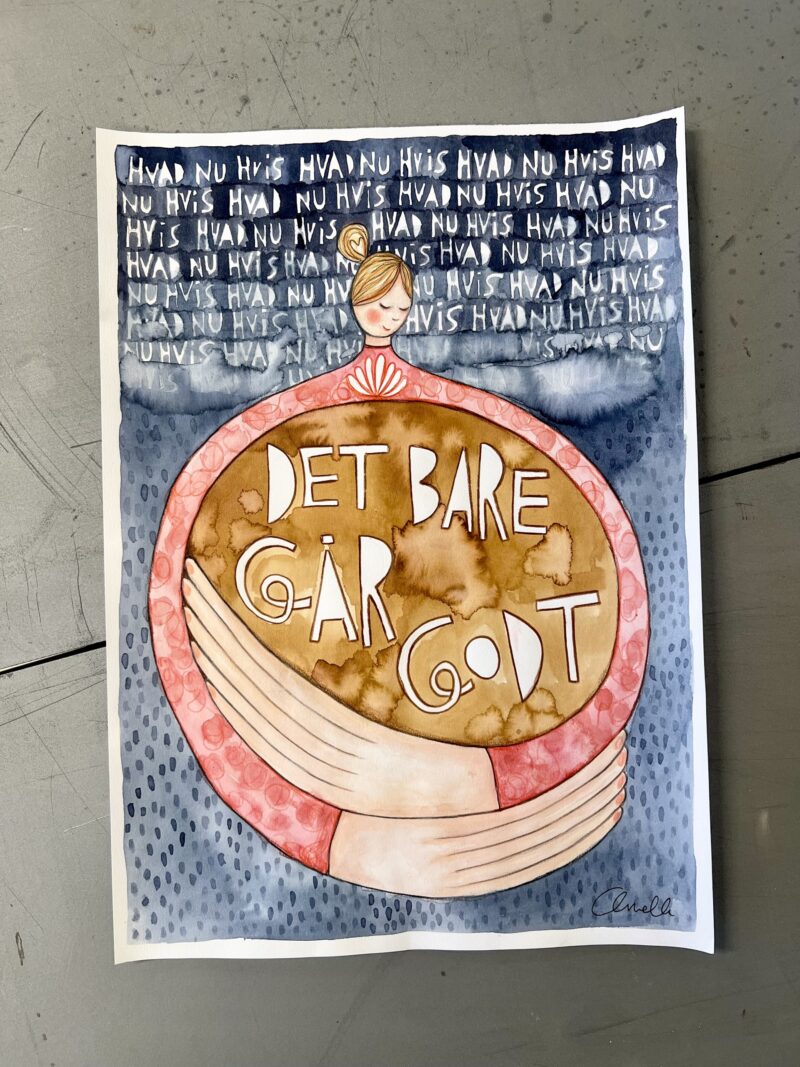 HVAD NU HViS HVAD NU HViS HVAD NU HViS HVAD
NU HViS HVAD NU HViS HVAD NU HViS HVAD NU
HViS HVAD NU HViS HVAD NU HViS HVAD NU HViS
HVAD NU HViS HVAD HViS HVAD NU HViS HVAD
NU HViS HVAD NU HViS NU HViS HVAD NU HViS
HVAD NU HViS HVAD HViS HVAD NU HViS HVAD
NU HViS HVAD NU HViS NU
HViS
DET BARE
GÅR
GODT